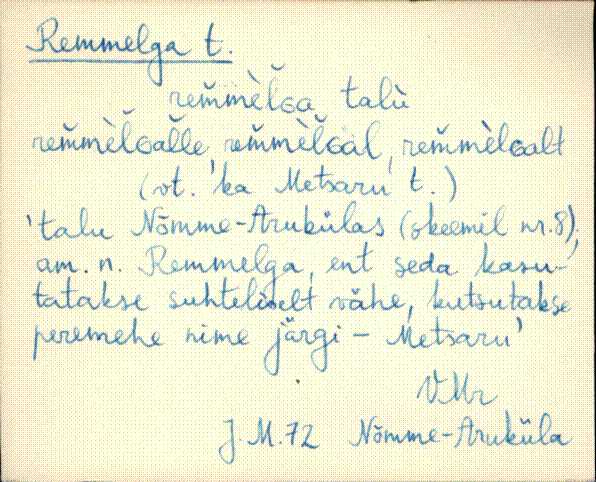 Remmelga t.
rem̆mèl̆ɢa talù
rem̆mèl̆ɢal̆le, rem̆mèl̆ɢal, rem̆mèlɢalt
(vt. ka Metsaru t.)
'talu Nõmme-Arukülas (skeemil nr. 8),
am. n. Remmelga, ent seda kasu-
tatakse suhteliselt vähe, kutsutakse
peremehe nime järgi – Metsaru'
VMr
J.M. 72 Nõmme-Aruküla